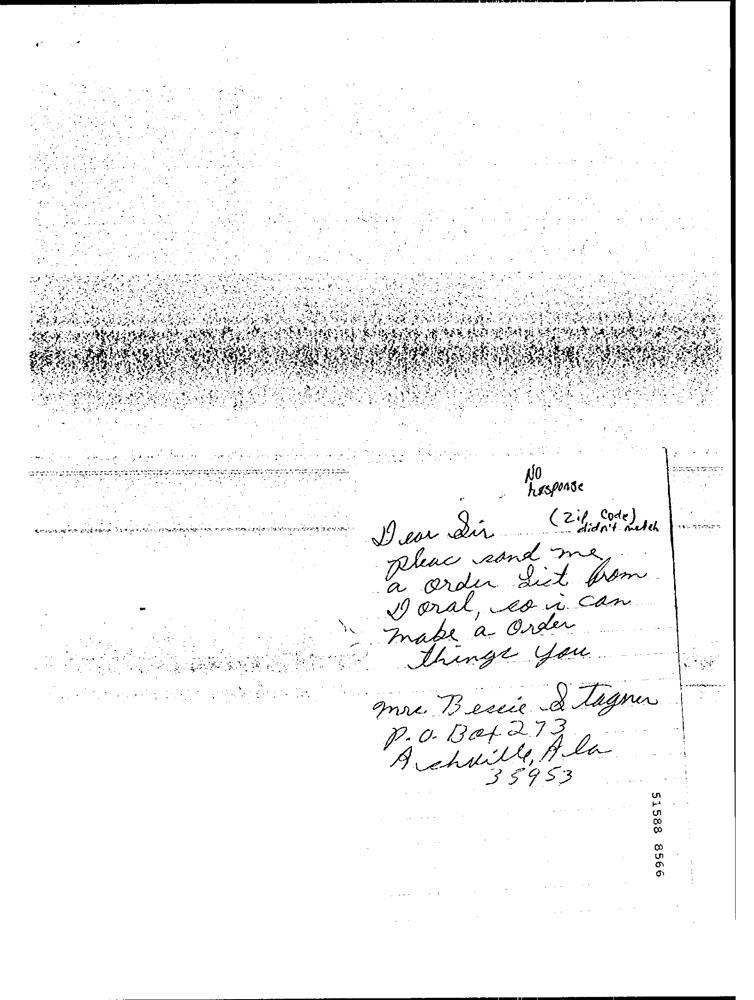 No
response
(Zip Code)
didn't match
Dear Sir
pleac sand me
a order List from
Doral, so i can
make a Order
things you
Mrs Bessie Stagner
P.O. Box 273
Ashville, Ala
35953
51588 8566